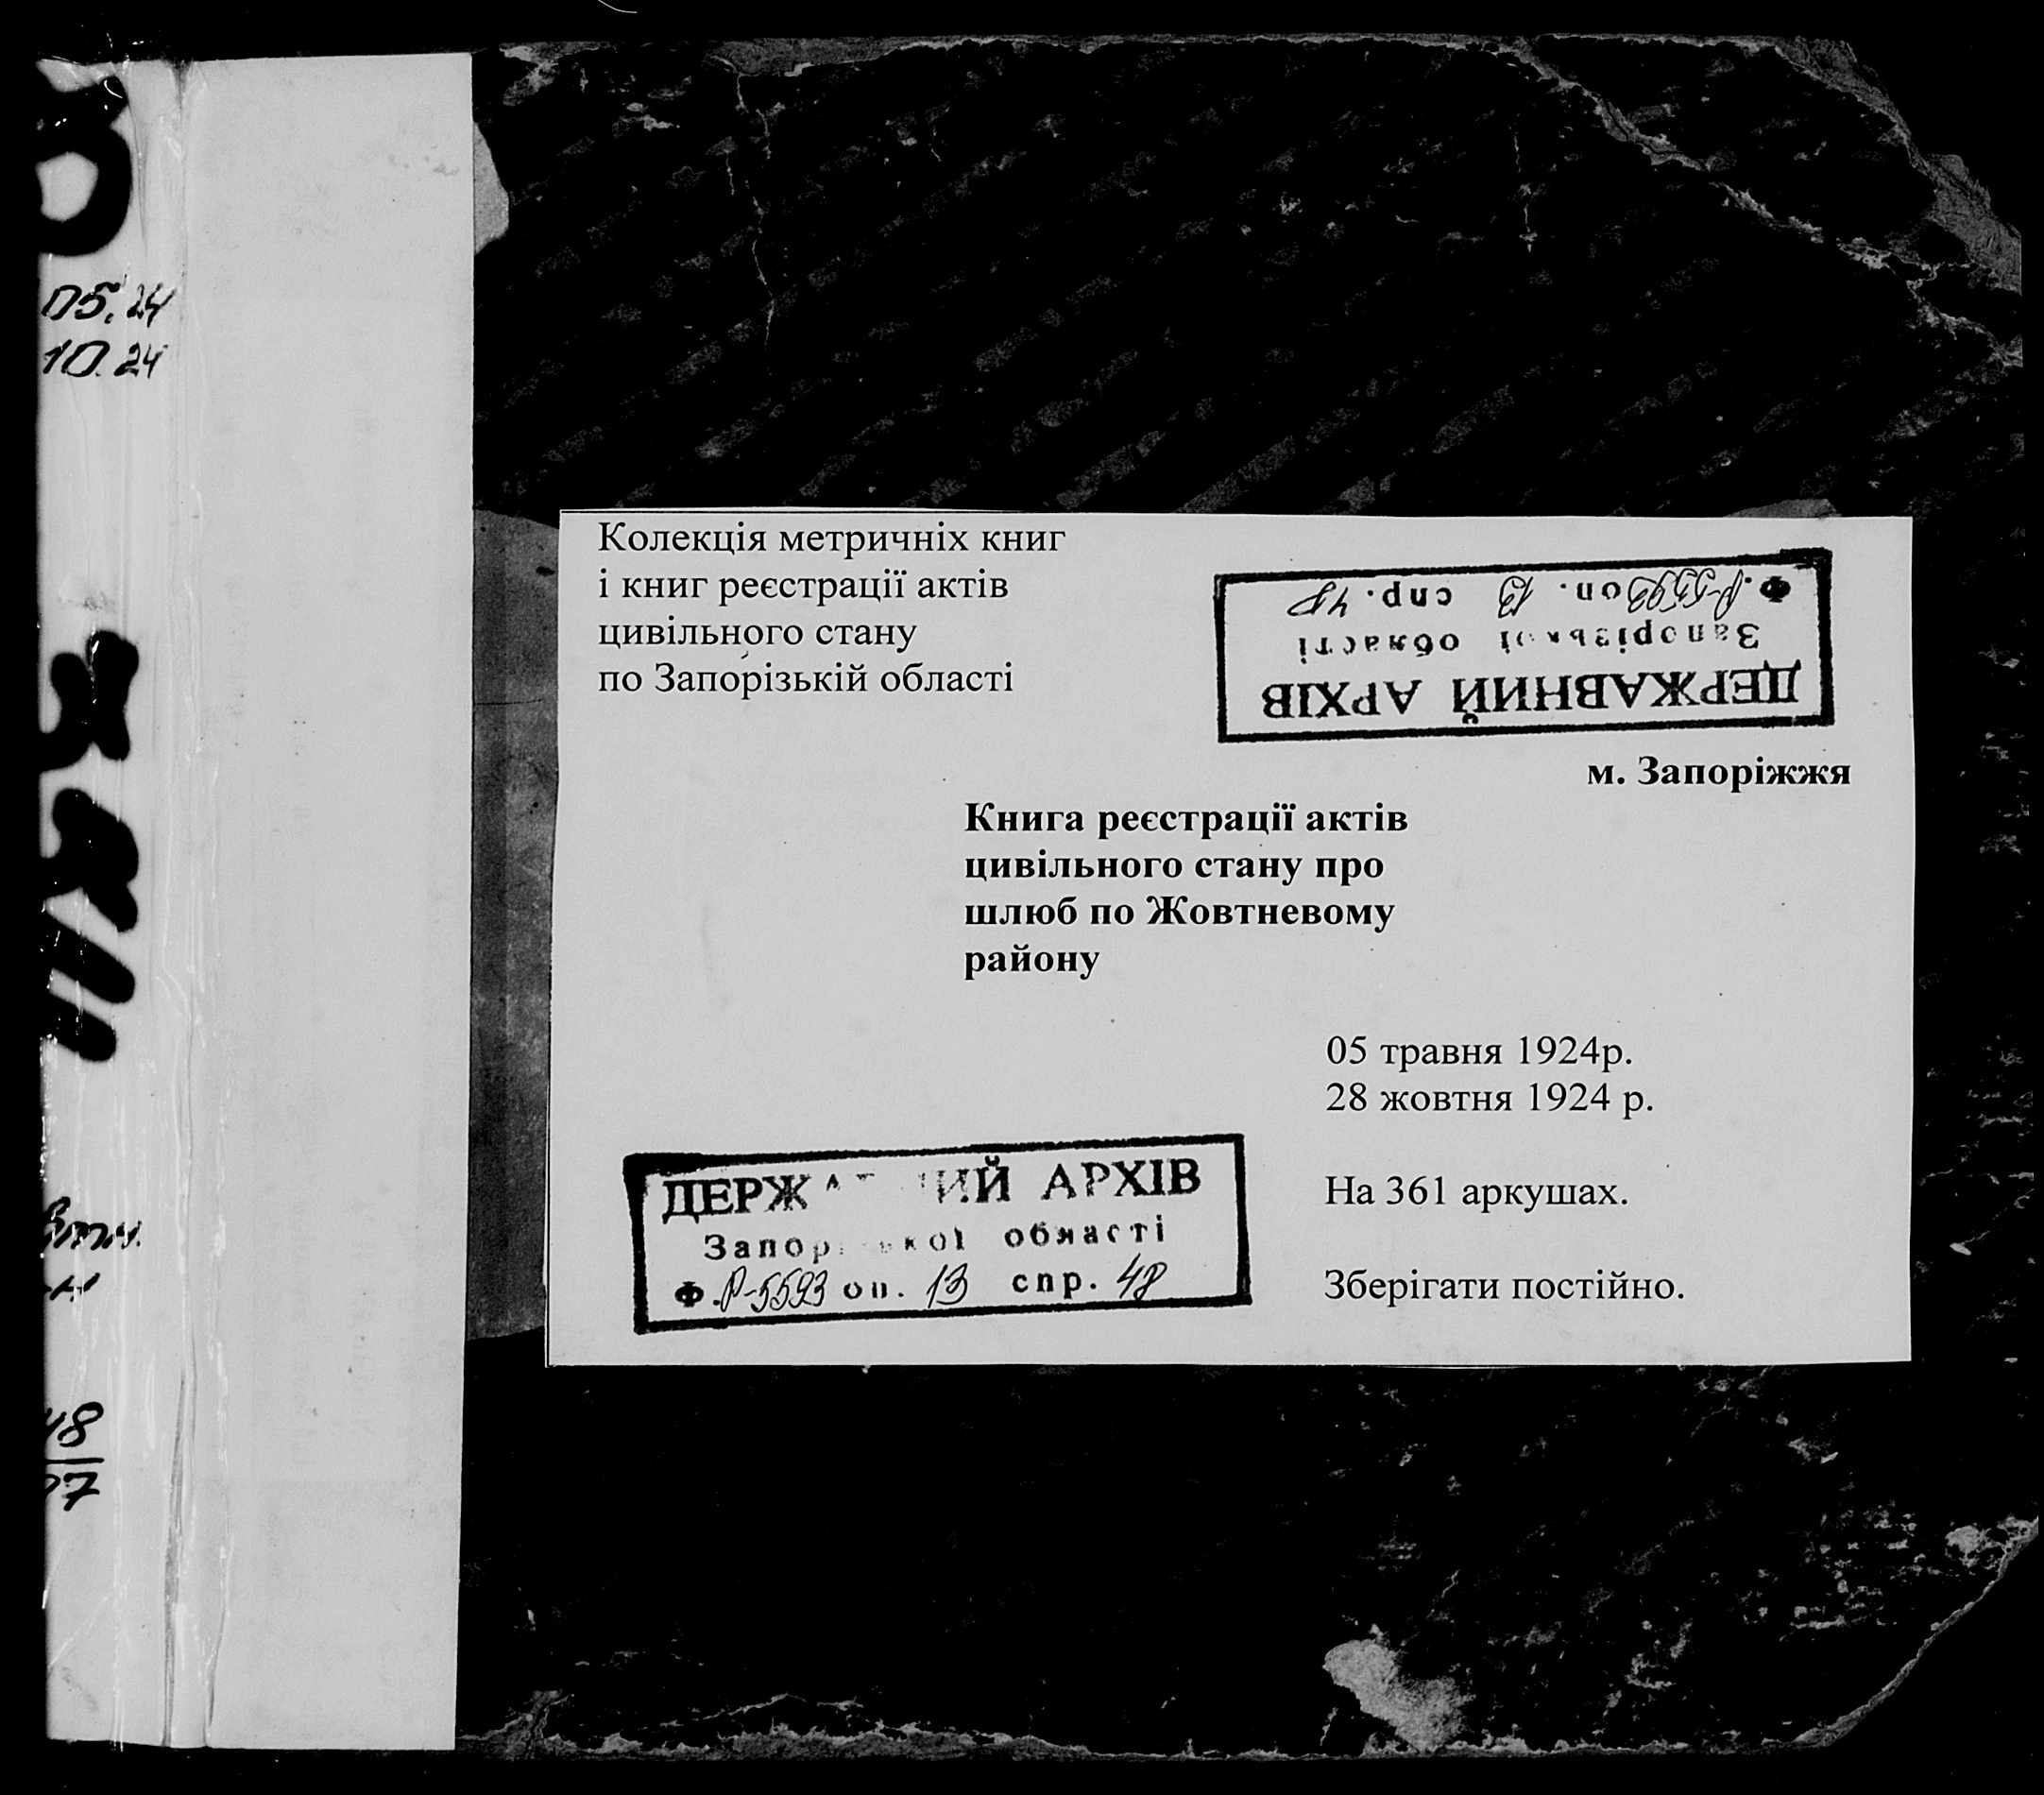 05.24
10.24
48
Колекція метричніх книг
і книг реєстрації актів
цивільного стану
по Запорізькій області
ДЕРЖАВНИЙ АРХІВ
Запорізької області
Ф. Р-5593 оп. 13 спр. 48
м. Запоріжжя
Книга реєстрації актів
цивільного стану про
шлюб по Жовтневому
району
05 травня 1924р.
28 жовтня 1924 р.
На 361 аркушах.
Зберігати постійно.
ДЕРЖАВНИЙ АРХІВ
Запорізької області
Ф. Р-5593 оп. 13 спр. 48